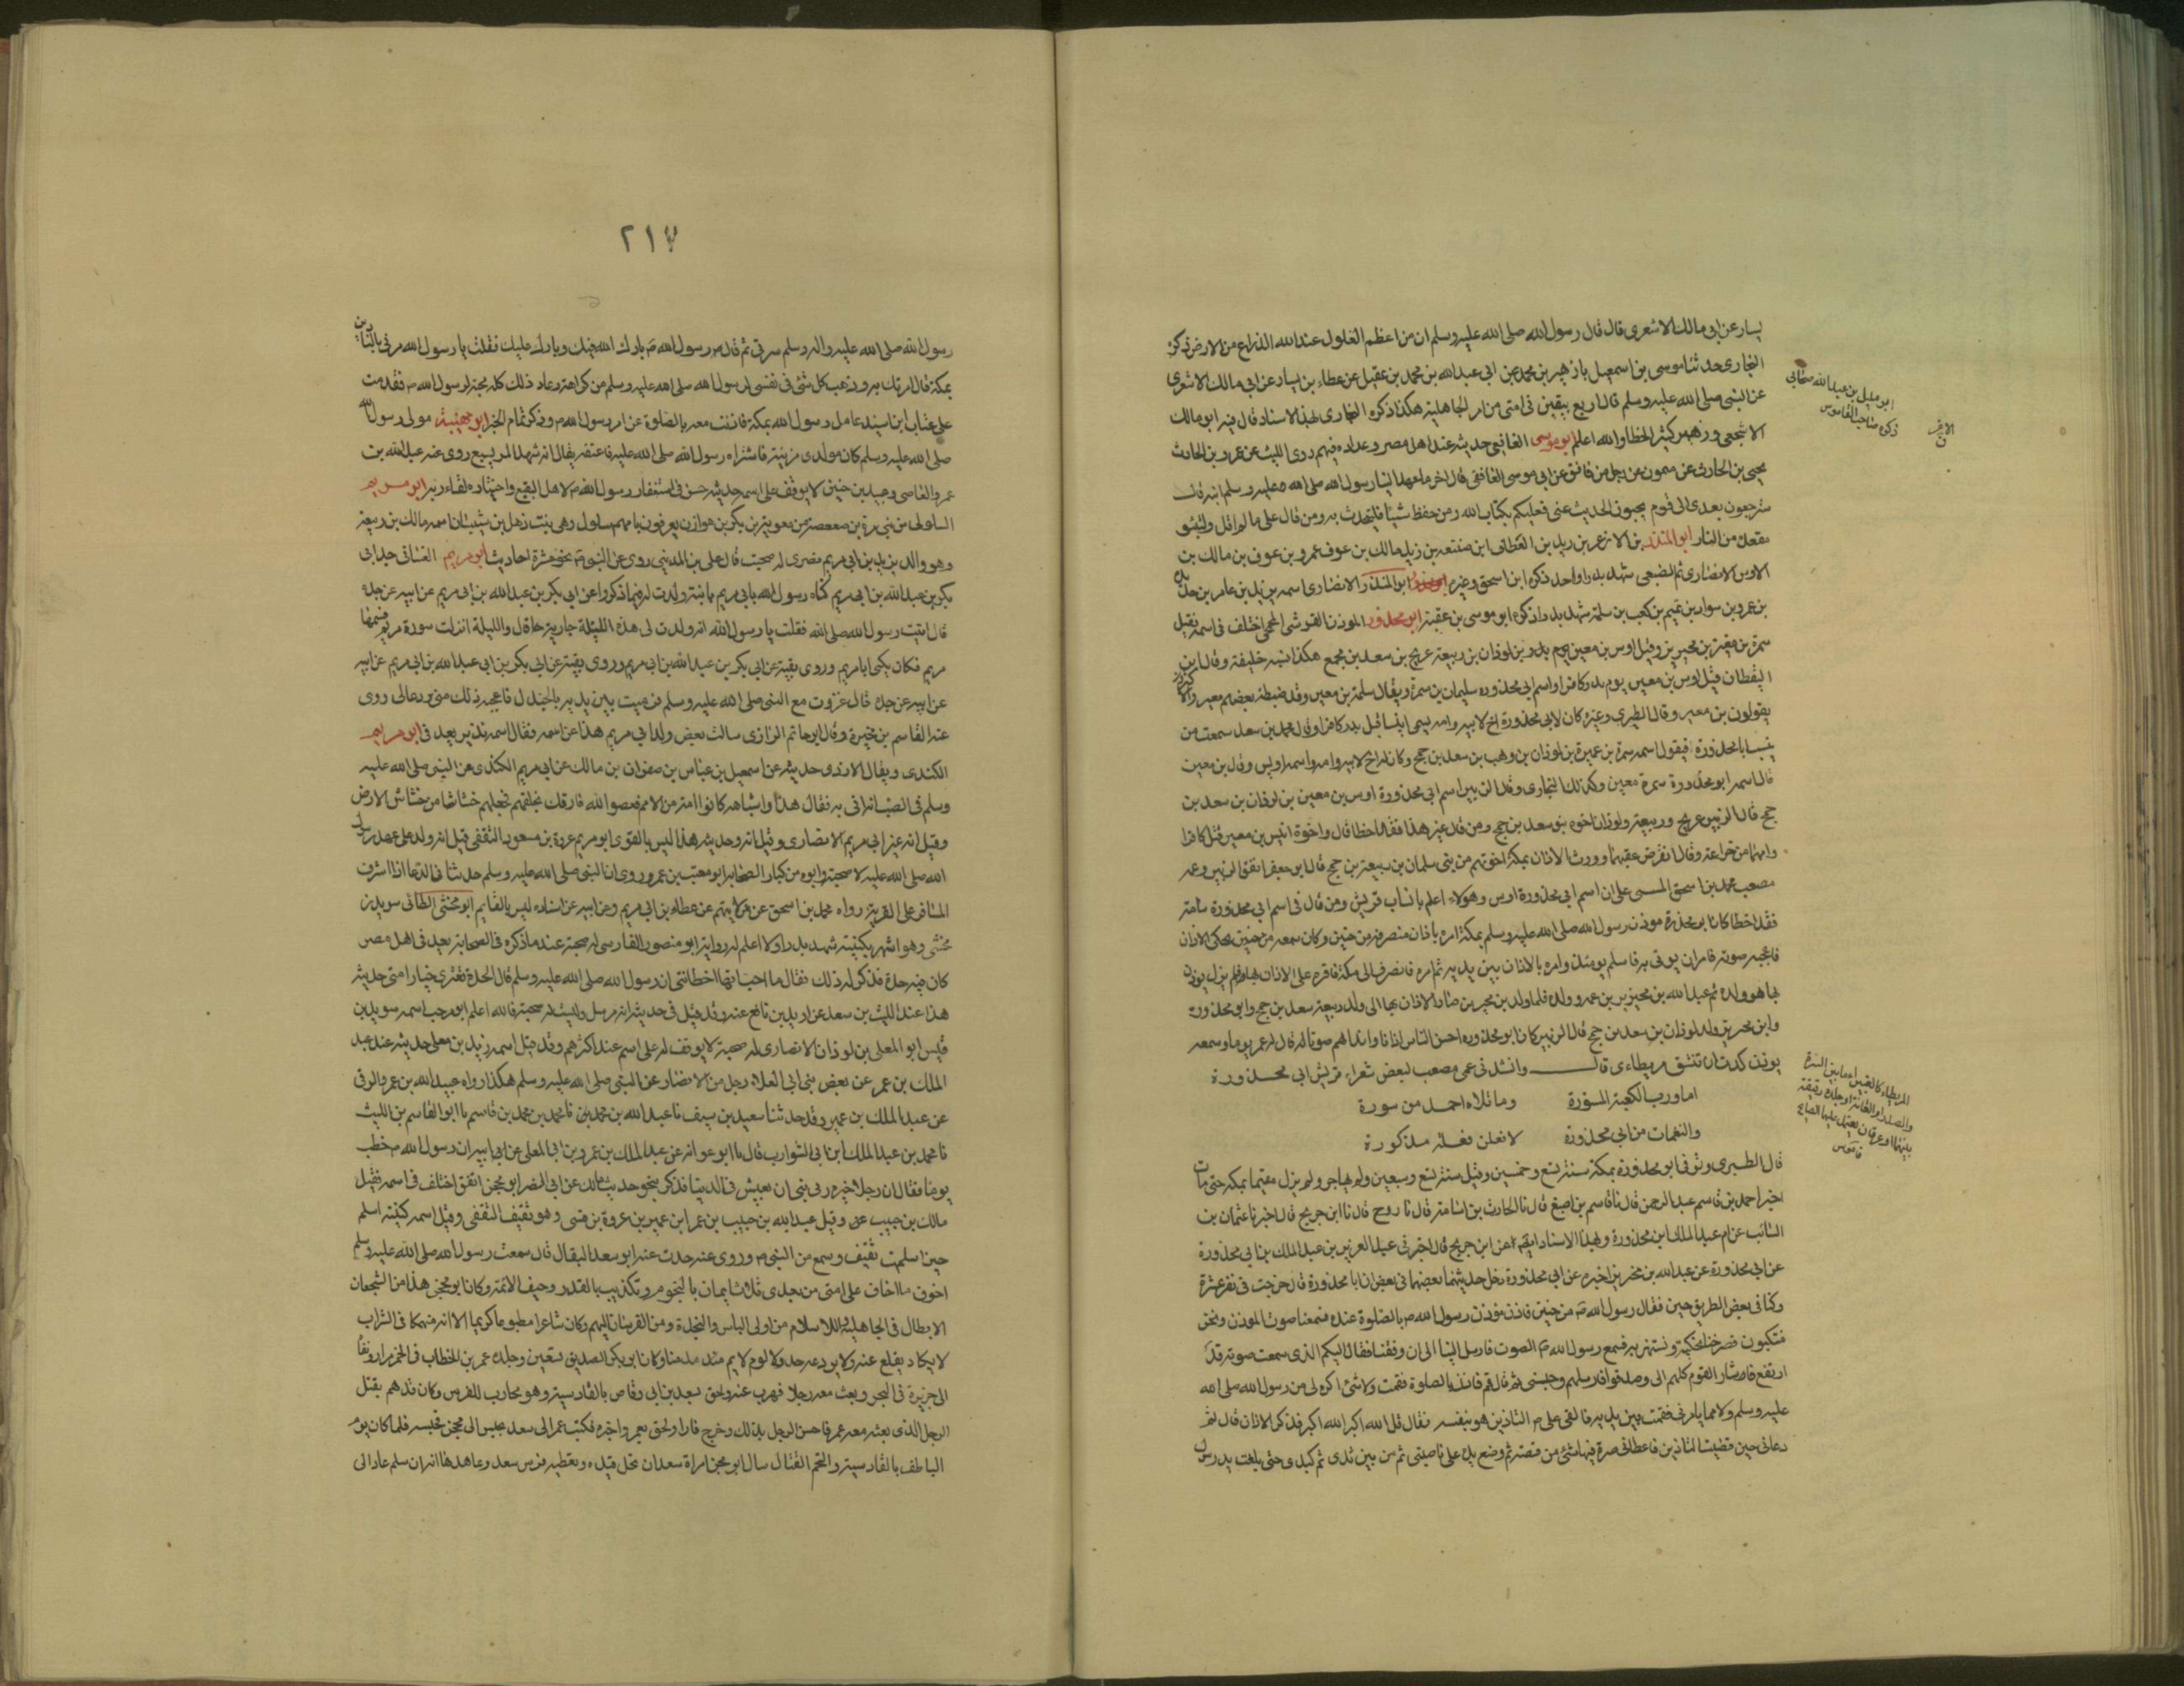 يسار عن ابى مالك الاشعرى قال قال رسول الله صلى الله عليه وسلم ان من اعظم الغلول عند الله الذراع من الارض ذكره
البخارى حدثنا موسى بن اسمعيل نا زهير بن محمد عن ابى عبد الله بن محمد بن عقيل عن عطاء بن يسار عن ابى مالك الاشعرى
عن النبى صلى الله عليه وسلم قال اربع يبقين فى امتى من امر الجاهلية هكذا ذكره البخارى بهذا الاسناد قال فيه ابو مالك
الاشجعى وزهير كثير الخطا والله اعلم ابو موسى الغافقى حديثه عند اهل مصر وعداده فيهم روى الليث عن عمرو بن الحارث
يحيى بن الحارث عن ميمون عن رجل من غافق عن ابى موسى الغافقى قال اخر ما عهد الينا رسول الله صلى الله عليه وسلم انه قال
سترجعون بعدى الى قوم يحبون الحديث عنى فعليكم بكتاب الله ومن حفظ شيئا فليتحدث به ومن قال على ما لم اقل فليتبوء
مقعده من النار ابو المنذر بن
الاوس الانصارى ثم الضبعى شهد بدرا واحد ذكره ابن اسحق وغيره ابو المنذر الانصارى اسمه يزيد بن عامر بن حديدة
بن عمرو بن سواد بن تميم بن كعب بن سلمة شهد بدرا ذكره ابو موسى بن عقبة ابو محذورة الموذن القرشى الجمحى اختلف فى اسمه فقيل
سمرة بن معير بن محيريز وقيل اوس بن معير بن لوذان بن ربيعة بن عريج بن سعد بن جمح هكذا نسبه خليفة وقال ابن
اليقظان قتل اوس بن معير يوم بدر كافرا واسم ابى محذوره سليمان بن سمرة ويقال سلمة بن معير وقد ضبطه بعضهم معير والاكثر
يقولون بن معير وقال الطبرى وغيره كان لابى محذورة اخ لابيه وامه يسمى انيسا قتل ببدر كافرا وقال محمد بن سعد سمعت من
ينسب ابا محذورة فيقول اسمه سمرة بن عمير بن لوذان بن وهب بن سعد بن جمح وكان له اخ لابيه وامه واسمه اويس وقال بن معين
قال اسم ابو محذورة سمرة معير وكذلك البخارى وقال الزبير اسم ابى محذورة اوس بن معير بن لوذان بن سعد بن
جمح قال الزبير عريج وربيعة ولوذان اخوه بنو سعد بن جمح ومن قال غير هذا فقد اخطا قال واخوه انيس بن معير قتل كافرا
وامهما من خزاعة وقال انقرض عقبهما وورث الاذان بمكة اخوتهم من بنى سلمان بن ربيعة بن جمح قال ابو عمر اتفق الزبير وعمه
مصعب محمد بن اسحق المسيبى على ان اسم ابى محذورة اوس وهولاء اعلم بانساب قريش ومن قال فى اسم ابى محذورة سلمة
فقد اخطا كان ابو محذرة موذن رسول الله صلى الله عليه وسلم بمكة امره باذان منصرفه من حنين وكان سمعه من حنين يحكى الاذان
فاعجبه صوته فامر ان يوتى به فاسلم يومئذ وامره بالاذان بين يديه ثم امره فانصرف الى مكة فاقره على الاذان بها فلم يزل يوذن
بها هو وولده ثم عبد الله بن محيريز بن عمه وولده فلما ولد بن محيريز صار الاذان بها الى ولد ربيعة سعد بن جمح وابو محذوره
وابن محيريز ولد لوذان بن سعد بن جمح قال الزبير كان ابو محذوره احسن الناس اذانا وانداهم صوتا له قال له عمر يوما وسمعه
يوذن كدت ان تنشق مريطاءى قال وانشدنى عمى مصعب لبعض شعراء قريش ابى محذورة
اما ورب الكعبة المستورة وما تلاه احمد من سورة
والنغمات من ابى محذورة لافعلن فعلة مذكورة
قال الطبرى وتوفى ابو محذورة بمكة سنة تسع وخمسين وقيل سنة تسع وسبعين ولم يهاجر ولم يزل مقيما بمكه حتى مات
اخبر احمد بن قاسم عبد الرحمن قال نا قاسم بن اصبغ قال نا الحارث بن اسامة قال نا روح قال نا ابن جريج قال اخبرنا عثمان بن
السائب عن ام عبد الملك ابن محذورة وبهذا الاسناد ايضا عن ابن جريج قال اخبرنى عبد العزيز بن عبد الملك بن ابى محذورة
عن ابى محذورة عن عبد الله بن محيريز اخبره عن ابى محذورة دخل حديثهما بعضهما فى بعض ان ابا محذورة قال خرجت فى نفر عشرة
وكنا فى بعض الطريق حين فقال رسول الله ص من حنين فاذن موذن رسول الله ص بالصلوة عنده فسمعنا صوت الموذن ونحن
متنكبون فصرخنا نحكيه ونستهزء به فسمع رسول الله ص الصوت فارسل الينا الى ان وقفنا فقال ايكم الذى سمعت صوته قد
ارتفع فاشار القوم كلهم الى وصدقوا فارسلهم وحبسنى ثم قال قم فاذن بالصلوة فقمت ولا شئ اكره لى من رسول الله صلى الله
عليه وسلم ولا مما يامرنى فقمت بين يديه فالقى على ص التاذين هو بنفسه فقال قل الله اكبر الله اكبر فذكر الاذان قال ثم
دعانى حين قضيت التاذين فاعطانى صرة فيها شئ من فضة ثم وضع يده على ناصيتى ثم من بين ثدى ثم كبدى حتى بلغت يد رسول
ابو مليل بن عبد الله صحابى
ذكره صاحب القاموس
المريطاء كالغبيراء ما بين السرة
والصدر او العانة او جلدة رقيقة
بينهما او عرقان يعتمد عليهما الصايح
قاموس
٢١٧
رسول الله صلى الله عليه واله وسلم سرتى ثم قال ص رسول الله ص بارك الله فيك وبارك عليك فقلت يا رسول الله مرنى بالتاذين
بمكة قال امرتك به وذهب كل شئ فى نفسى لرسول الله صلى الله عليه وسلم من كراهته وعاد ذلك كله محبة لرسول الله ص فقدمت
على عتاب ابن اسيد عامل رسول الله بمكة فاذنت معه بالصلوة عن امر رسول الله ص وذكر تمام الخبر ابو مويهبة مولى رسول الله
صلى الله عليه وسلم كان مولدى مزينة فاشتراه رسول الله صلى الله عليه فاعتقه يقال انه شهد المريسيع روى عنه عبد الله بن
عمر والعاصى وعبيد بن حنين لا يوقف على اسمه حديثه حسن فى استغفار رسول الله ص لاهل البقيع واختياره لقاء ربه ابو مريم
السلولى من بنى مرة بن صعصعة من معوية بن بكر بن هوازن يعرفون بامهم سلول وهى بنت ذهل بن شيبان اسمه مالك بن ربيعة
وهو والد بن يزيد بن ابى مريم مصرى له صحبة قال على بن المدينى روى عن النبى ص نحو عشرة احاديث ابو مريم الغسانى جد ابى
بكر بن عبد الله بن ابى مريم كناه رسول الله بابى مريم بابنة ولدت له فيما ذكروا عن ابى بكر بن عبد الله بن ابى مريم عن ابيه عن جده
قال اتيت رسول الله صلى الله فقلت يا رسول الله انه ولدت لى هذه الليلة جارية قال والليلة انزلت سورة مريم فسمها
مريم فكان يكنى ابا مريم وروى بقية عن ابى بكر بن عبد الله بن ابى مريم وروى بقية عن ابى بكر بن ابى عبد الله بن ابى مريم عن ابيه
عن ابيه عن جده قال غزوت مع النبى صلى الله عليه وسلم فرميت بين يديه بالجندل فاعجبه ذلك منى ودعا لى روى
عنه القاسم بن مخيمرة وقال ابو حاتم الرازى سالت بعض ولد ابى مريم هذا عن اسمه فقال اسمه نذير يعد فى ابو مريم
الكندى ويقال الازدى حديثه عن اسمعيل بن عياش بن صفوان بن مالك عن ابى مريم الكندى عن النبى صلى الله عليه
وسلم فى الضب انه اتى به فقال هذا واشباهه كانوا امة من الامم فعصوا الله فجعلهم خشاشا من خشاش الارض
وقيل انه غير ابى مريم الانصارى وقيل انه وحديثه هذا ليس بالقوى ابو مريم عروة بن مسعود الثقفى قيل انه ولد على عهد رسول
الله صلى الله عليه لا صحبة وابوه من كبار الصحابه ابو معتب بن عمرو روى ان النبى صلى الله عليه وسلم حديثا فى الدعا اذا اشرف
المسافر على القرية رواه محمد بن اسحق عن من لا يتهم عن عطاء بن ابى مريم وعن ابيه عن اسناده ليس بالقايم ابو مخشى الطائى سويد بن
مخشى وهو اشهر بكنيته شهد بدرا ولا اعلم له رواية ابو منصور الفارسى له صحبة عند ما ذكره فى الصحابة يعد فى اهل مصر
كان فيه حدة فذكر له ذلك فقال ما احب انها اخطاتنى ان رسول الله صلى الله عليه وسلم قال الحدة تعترى خيار امتى حديثه
هذا عند الليث بن سعد عن دويد بن نافع عنه وقد قيل فى حديثه انه مرسل وليست له صحبة فالله اعلم ابو مرحب اسمه سويد بن
قيس ابو المعلى بن لوذان الانصارى له صحبة لا يوقف له على اسم عند اكثرهم وقد قيل اسمه زيد بن معلى حديثه عند عبد
الملك بن عمر عن بعض بنى ابى العلاء رجل من الانصار عن النبى صلى الله عليه وسلم هكذا رواه عبيد الله بن عمرو الرقى
عن عبد الملك بن عمير وقد حدثنا سعيد بن سيف نا عبد الله بن محمد بن نا محمد بن محمد بن قاسم نا ابو القاسم بن الليث
نا محمد بن عبد الملك ابن ابى الشوارب قال نا ابو عوانه عن عبد الملك بن عمرو بن ابى المعلى عن ابيه ان رسول الله ص خطب
يوما فقال ان رجلا خيره ربى بين ان يعيش فى الدنيا فذكر نحو حديث مالك عن ابى النضر ابو محجن الثقفى اختلف فى اسمه فقيل
مالك بن حبيب عن وقيل عبد الله بن حبيب بن عمر ابن عمير بن عروة بن قسى وهو ثقيف الثقفى وقيل اسمه كنيته اسلم
حين اسلمت ثقيف وسمع من النبى ص وروى عنه حدث عنه ابو سعد البقال قال سمعت رسول الله صلى الله عليه وسلم
اخوف ما اخاف على امتى من بعدى ثلاث ايمان بالنجوم وتكذيب بالقدر وحيف الائمة وكان ابو محجن هذا من الشجعان
الابطال فى الجاهلية والاسلام من اولى الباس والنجدة ومن الفرسان اليهم وكان شاعرا مطبوعا كريما الا انه منهمكا فى الشراب
لا يكاد يقلع عنه ولا يردعه حد ولا لوم لايم وكان ابو بكر الصديق يستعين وجلده عمر بن الخطاب فى الخمر مرارا ونفاه
الى جزيرة فى البحر وبعث معه رجلا فهرب عنه ولحق بسعد بن ابى وقاص بالقادسية وهو محارب للفرس وكان قد هم بقتل
الرجل الذى بعثه معه عمر فاحس الرجل بذلك وخرج فارا ولحق بعمر واخبره فكتب عمر الى سعد بحبس ابى محجن فحبسه فلما كان يوم
الناطف بالقادسية والتحم القتال سال ابو محجن امراة سعد ان تحل قيده وتعطيه فرس سعد وعاهدها انه ان سلم عاد الى